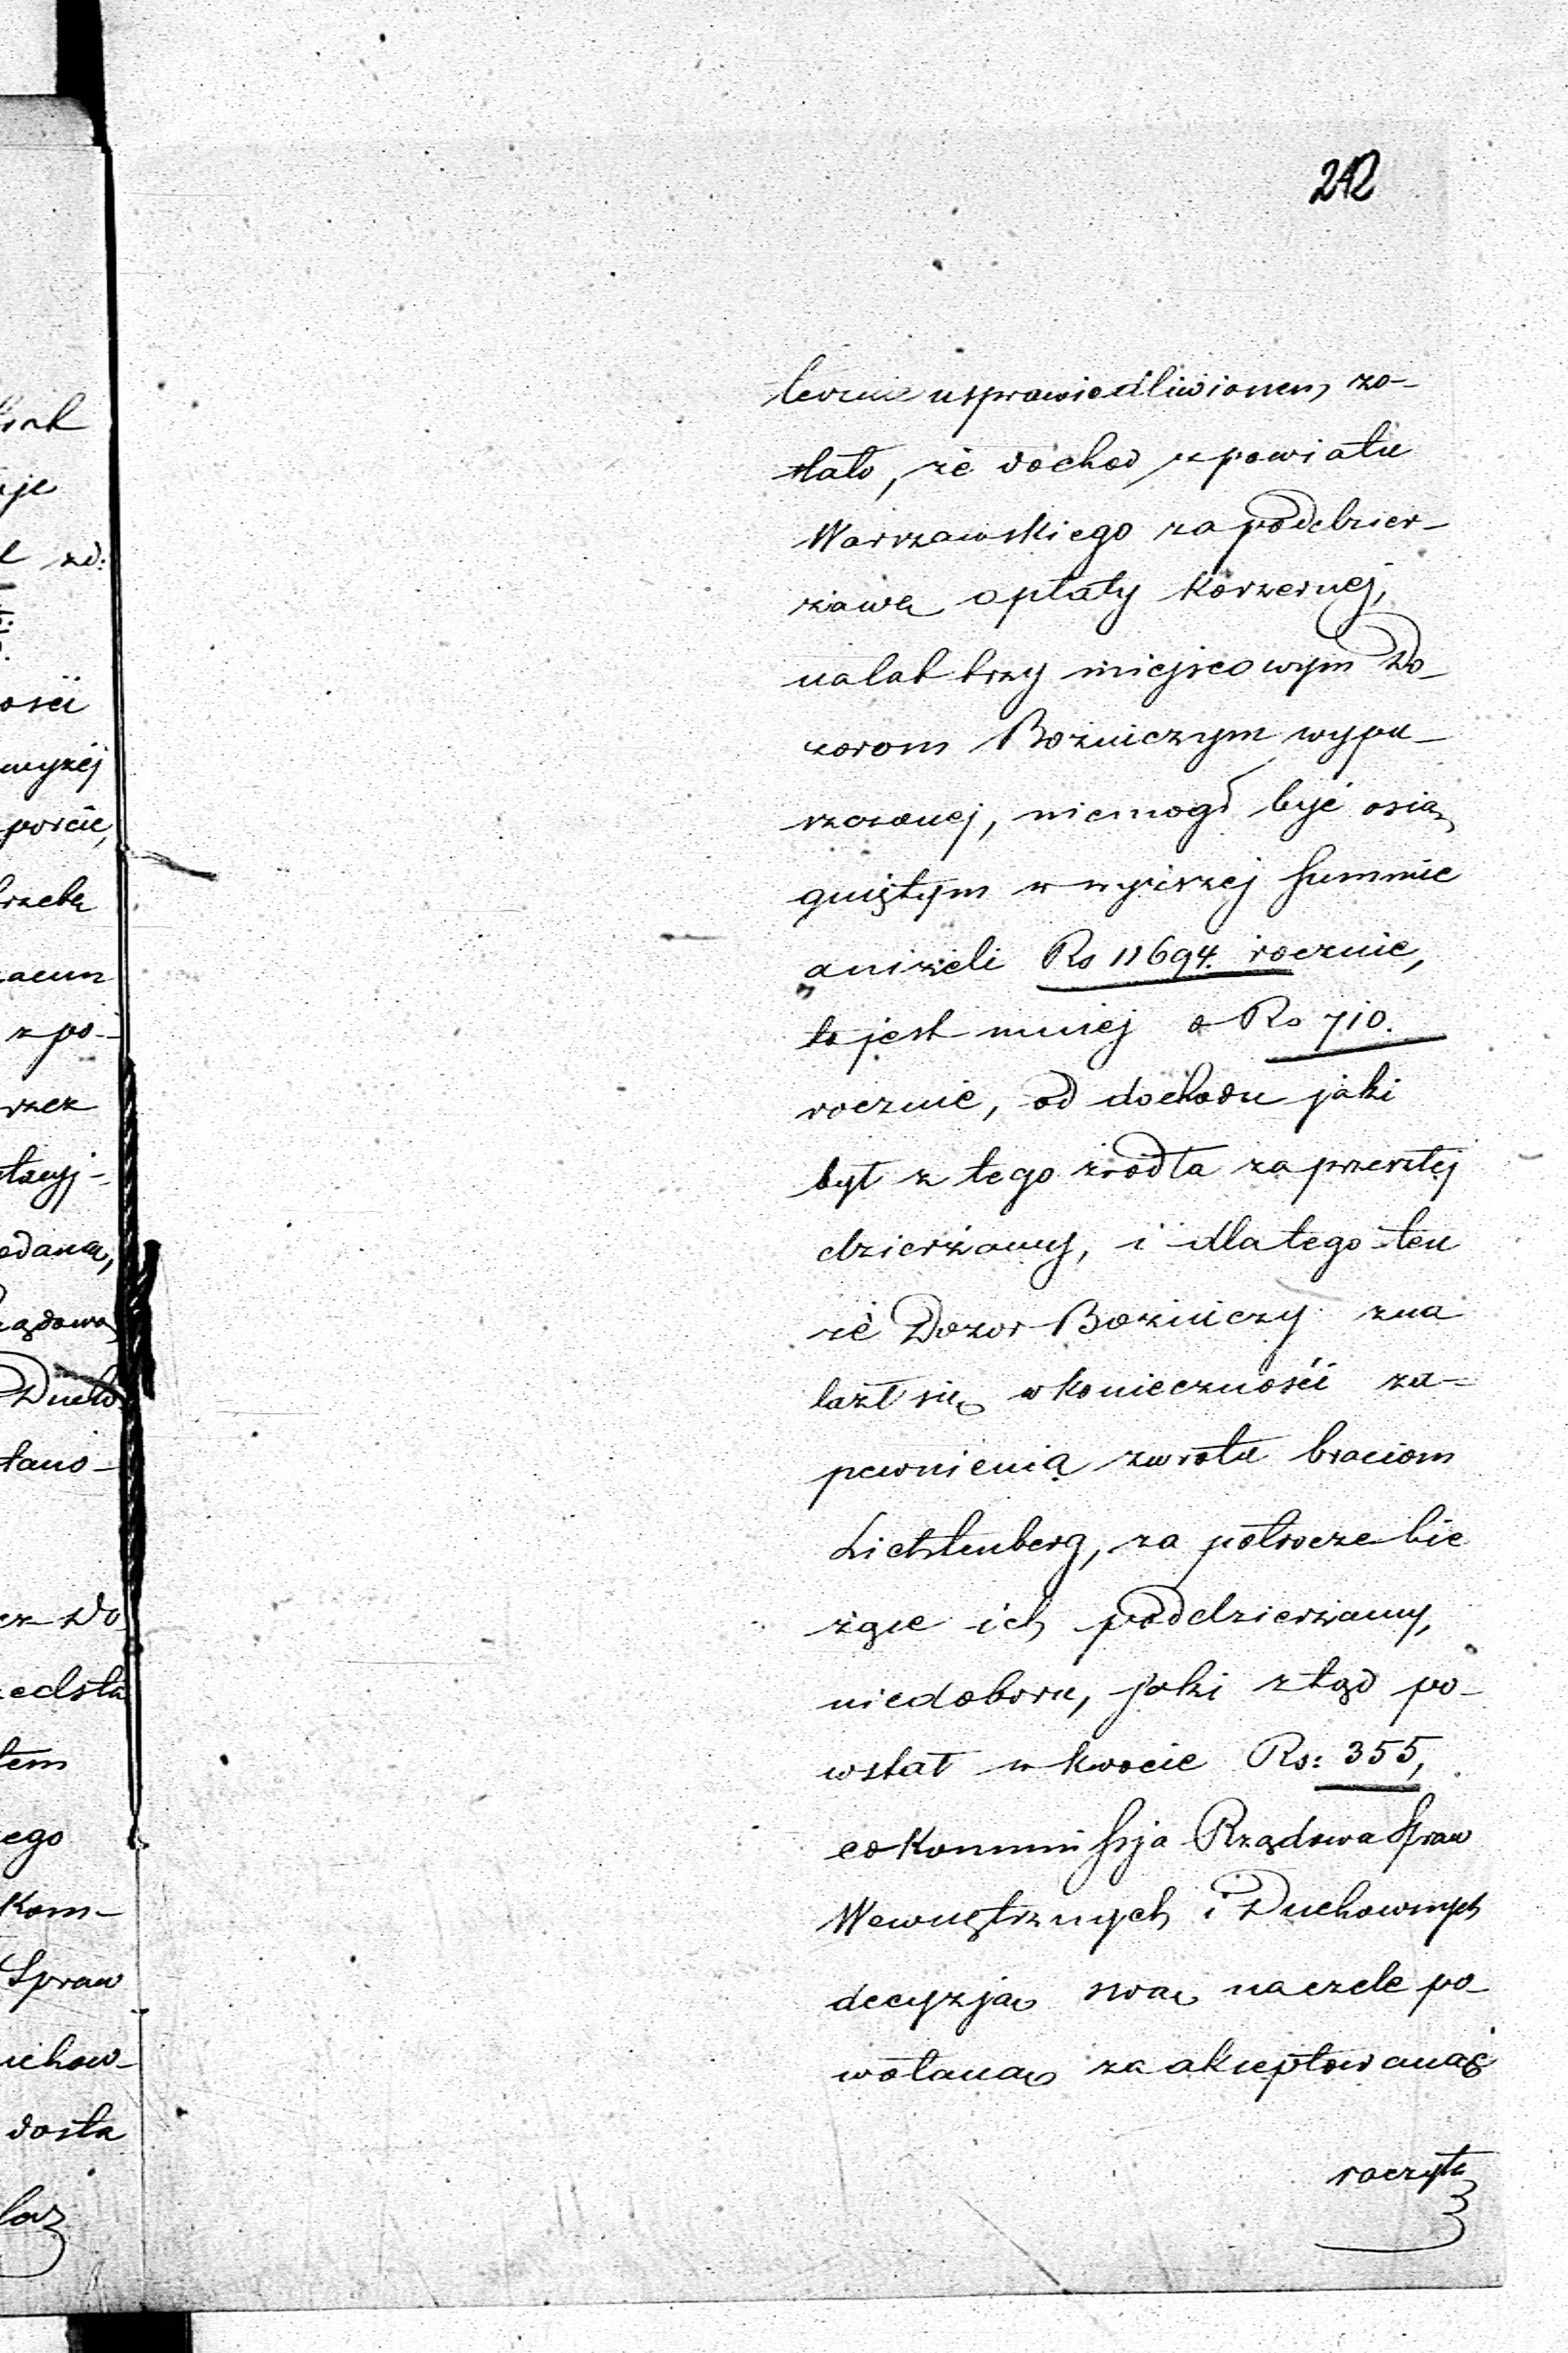 212
tecznie usprawiedliwionem zo-
stało, że dochod z powiatu
Warszawskiego za poddzier-
żawę opłaty Koszernej,
na lat trzy miejscowym Do-
zorom Bożniczym wypu-
szczonej, niemógł być osią
gniętym w wyższej Summie
aniżeli Rs 11694. rocznie,
to jest mniej o Rs 710.
rocznie, od dochodu jaki
był z tego źrodła za przeszłej
dzierżawy, i dla tego ten
że Dozor Bożniczy zna
lazł się w konieczności za-
pewnienia zwrotu braciom
Lichtenberg, za półrocze bie
żące ich poddzierżawy,
niedoboru, jaki ztąd po-
wstał w kwocie Rs: 355,
co Kommissja Rządowa Spraw
Wewnętrznych i Duchownych
decyzją swą na czele po-
wołaną zaakceptować
raczyła
ości
wyżej
z po-
Rządowa
ego
Kom-
Spraw